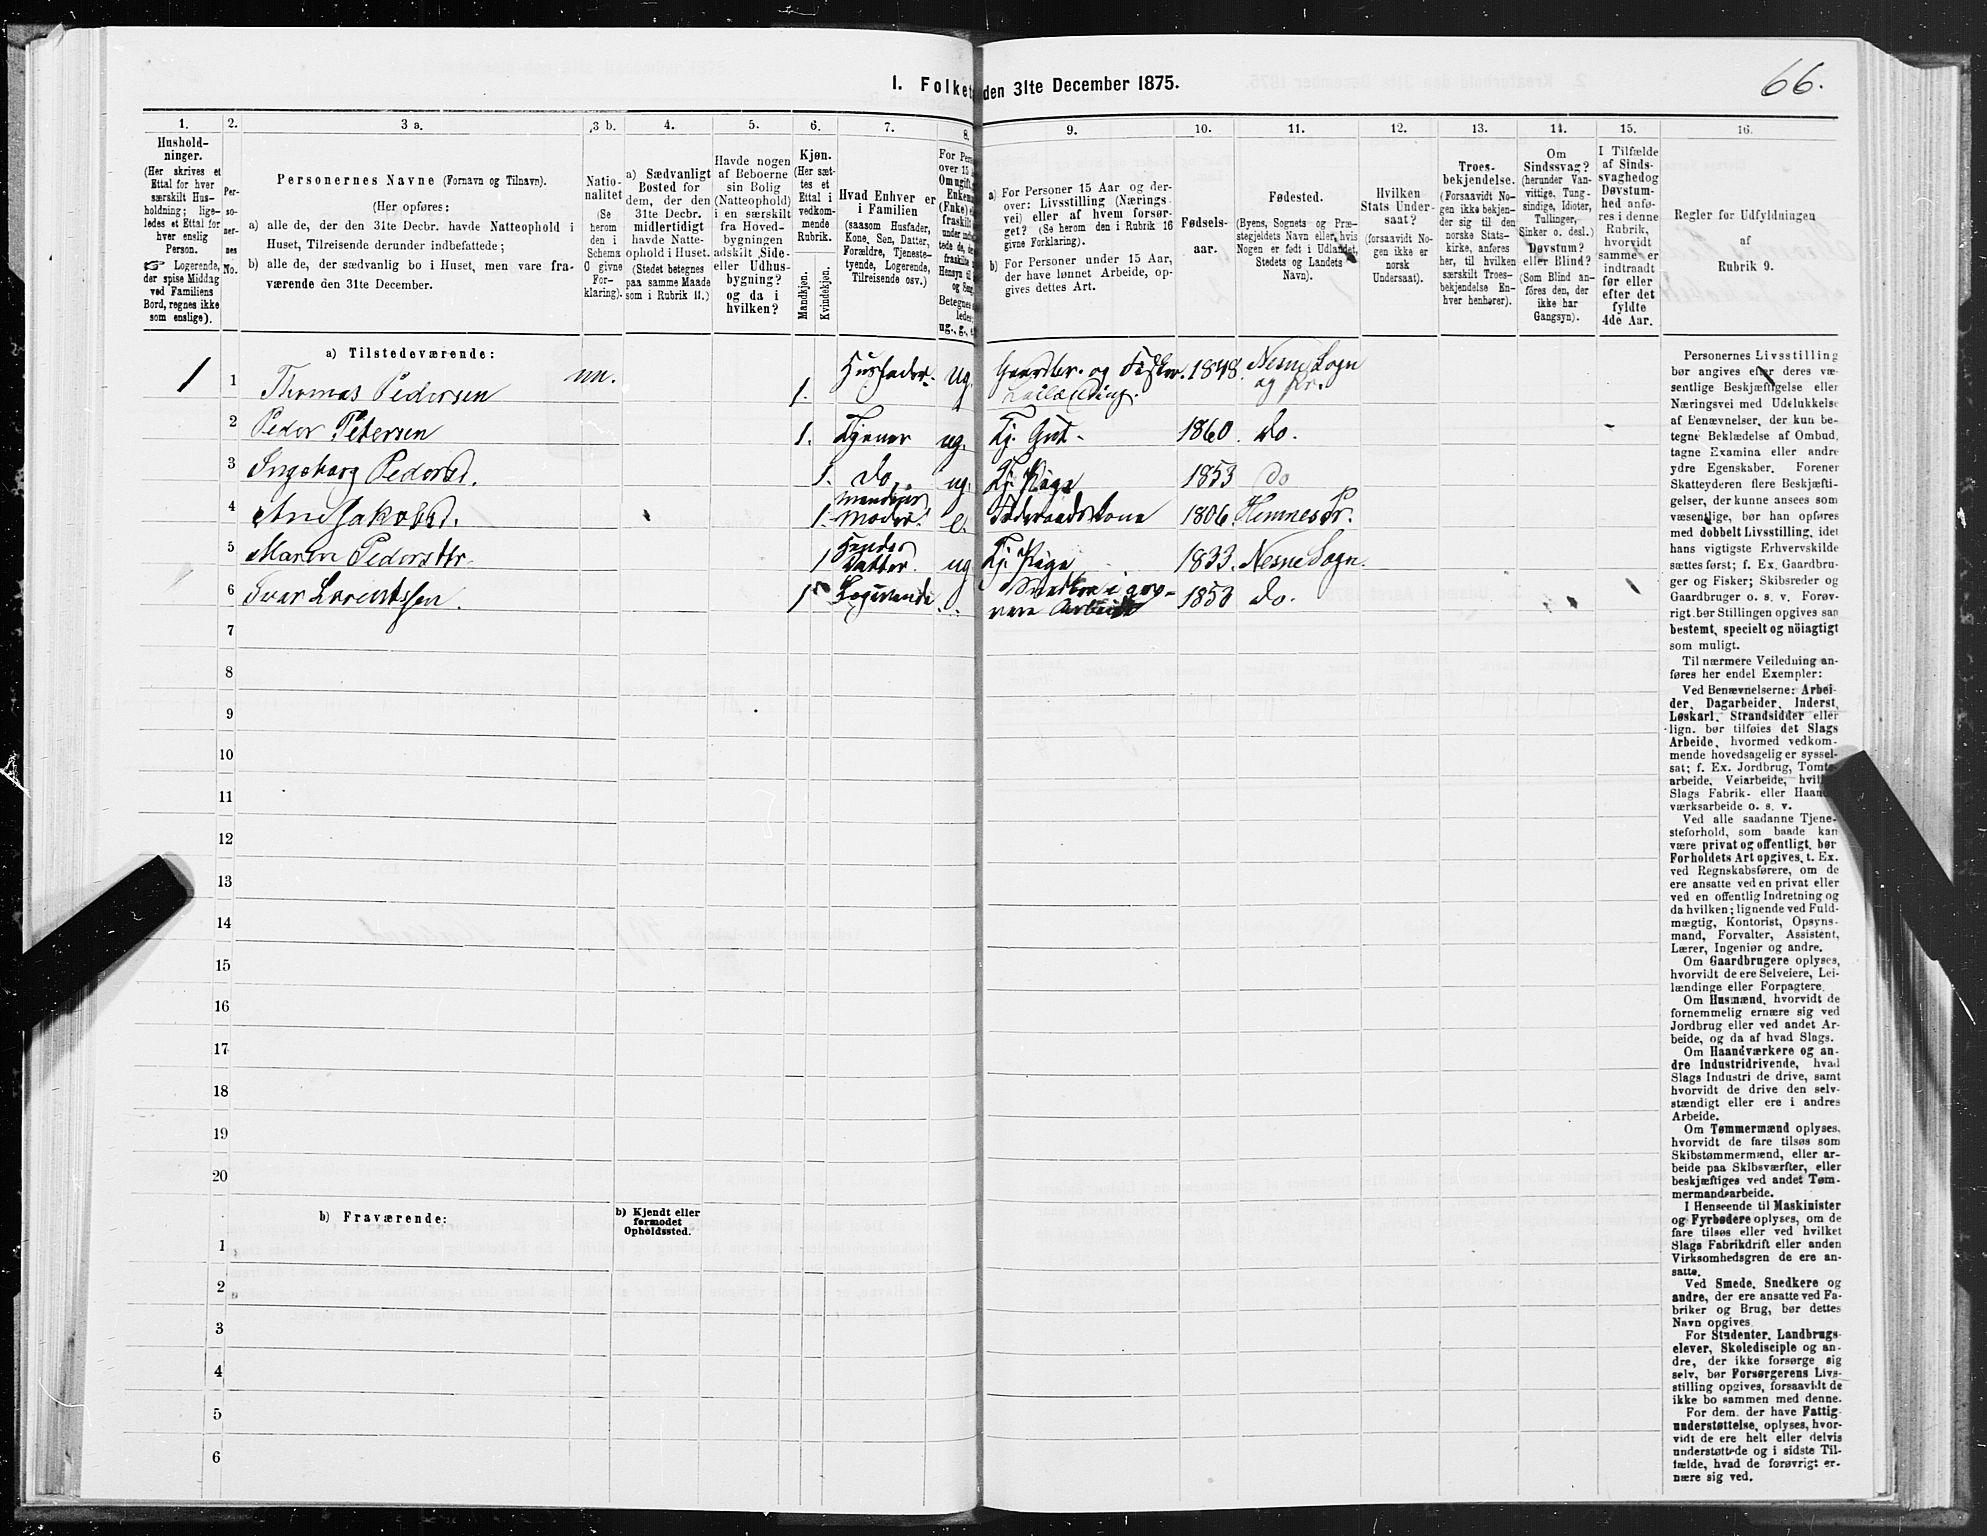 66.
1. Folket den 31te December 1875.
1. 2. 3 a. 3 b. 4. 5. 6. 7. 8. 9. 10. 11. 12. 13. 14. 15. 16.
Hushold-
ninger.
(Her skrives et
Ettal for hver
særskilt Hus-
holdning; lige-
ledes et Ettal for
hver enslig
Person.
☞ Logerende,
der spise Middag
ved Familiens
Bord, regnes ikke
som enslige).
Per-
so-
ner-
nes
No.
Personernes Navne (Fornavn og Tilnavn).
(Her opføres:
a) alle de, der den 31te Decbr. havde Natteophold i
Huset, Tilreisende derunder indbefattede;
b) alle de, der sædvanlig bo i Huset, men vare fra-
værende den 31te December.
Natio-
nalitet
(Se
herom
den i
Schema
O givne
For-
klaring).
a) Sædvanligt
Bosted for
dem, der den
31te Decbr.
midlertidigt
havde Natte-
ophold i Huset.
(Stedet betegnes
paa samme Maade
som i Rubrik 11.)
Havde nogen
af Beboerne
sin Bolig
(Natteophold)
i en særskilt
fra Hoved-
bygningen
adskilt Side-
eller Udhus-
bygning?
og da i
hvilken?
Kjøn.
(Her sæt-
tes et
Ettal i
vedkom-
mende
Rubrik.
Mandkjøn.
Kvindekjøn.
Hvad Enhver er
i Familien
(saasom Husfader,
Kone, Søn, Datter,
Forældre, Tjeneste-
tyende, Logerende,
Tilreisende osv.)
For Pers
over 15
Om ugift,
Enkem
(Enke)
fraskilt
under
tede de,
fraskilte
Hensyn til
og Seng.
Betegnes
ledes:
ug., g., e
a) For Personer 15 Aar og der-
over: Livsstilling (Nærings-
vei) eller af hvem forsør-
get? (Se herom den i Rubrik 16
givne Forklaring).
b) For Personer under 15 Aar,
der have lønnet Arbeide, op-
gives dettes Art.
Fødsels-
aar.
Fødested.
(Byens, Sognets og Præ-
stegjeldets Navn eller, hvis
Nogen er født i Udlandet,
Stedets og Landets
Navn).
Hvilken
Stats Under-
saat?
(forsaavidt No-
gen ikke er
norsk
Undersaat).
Troes-
bekjendelse.
(Forsaavidt No-
gen ikke bekjen-
der sig til den
norske Stats-
kirke, anføres
her, til hvilken
særskilt Troes-
bekjendelse En-
hver henhører).
Om
Sindssvag?
(herunder Van-
vittige, Tung-
sindige, Idioter,
Tullinger,
Sinker o. desl.)
Døvstum?
eller Blind?
(Som Blind an-
føres den, der
ikke har
Gangsyn).
I Tilfælde
af Sinds-
svaghed og
Døvstum-
hed anfø-
res i denne
Rubrik,
hvorvidt
samme er
indtraadt
før eller
efter det
fyldte
4de Aar.
Regler for Udfyldningen
af
Rubrik 9.
a) Tilstedeværende:
1 1 Thomas Pedersen nn. 1. Husfader. ug. Gaardbr. og Fisker. Leilænding. 1848. Nesne Sogn og Pr.
2 Peder Petersen 1. Tjener ug. Tj. Gut. 1860. do.
3 Ingeborg Pedersd. 1. do. ug. Tj. Pige 1853 do
4 Ane Jakobsd. 1. Mandens Moder. e. Føderaadskone 1806. Hemnes Pr.
5 Maren Pedersdtr 1 Hendes Datter. ug Tj. Pige 1833. Nesne Sogn.
6 Ivar Lorentssen. 1 Logerende Snedker i grovere Arbeide 1853 do.
7
8
9
10
11
12
13
14
15
16
17
18
19
20
b) Fraværende:
b) Kjendt eller
formodet
Opholdssted.
1
2
3
4
5
6
Personernes Livsstilling
bør angives efter deres væ-
sentlige Beskjæftigelse eller
Næringsvei med Udelukkelse
af Benævnelser, der kun be-
tegne Beklædelse af Ombud,
tagne Examina eller andre
ydre Egenskaber. Forener
Skatteyderen flere Beskjæfti-
gelser, der kunne ansees som
væsentlige, bør han opføres
med dobbelt Livsstilling, idet
hans vigtigste Erhvervskilde
sættes først; f. Ex. Gaardbru-
ger og Fisker; Skibsreder og
Gaardbruger o. s. v. Forøv-
rigt bør Stillingen opgives saa
bestemt, specielt og nöiagtigt
som muligt.
Til nærmere Veiledning an-
føres her endel Exempler:
Ved Benævnelserne: Arbei-
der, Dagarbeider, Inderst,
Løskarl, Strandsidder eller
lign. bør tilføies det Slags
Arbeide, hvormed vedkom-
mende hovedsagelig er syssel-
sat; f. Ex. Jordbrug, Tomte-
arbeide, Veiarbeide, hvilket
Slags Fabrik- eller Haand-
værksarbeide o. s. v.
Ved alle saadanne Tjene-
steforhold, som baade kan
være privat og offentligt, bør
Forholdets Art opgives, t. Ex.
ved Regnskabsførere, om de
ere ansatte ved en privat eller
ved en offentlig Indretning og
da hvilken; lignende ved Fuld-
mægtig, Kontorist, Opsyns-
mand, Forvalter, Assistent,
Lærer, Ingeniør og andre.
Om Gaardbrugere oplyses,
hvorvidt de ere Selveiere, Lei-
lændinge eller Forpagtere.
Om Husmænd, hvorvidt de
fornemmelig ernære sig ved
Jordbrug eller ved andet Ar-
beide, og da af hvad Slags.
Om Haandværkere og an-
dre Industridrivende, hvad
Slags Industri de drive, samt
hvorvidt de drive den selv-
stændigt eller ere i andres
Arbeide.
Om Tømmermænd oplyses,
hvorvidt de fare tilsøs som
Skibstømmermænd, eller ar-
beide paa Skibsværfter, eller
beskjæftiges ved andet Tøm-
mermandsarbeide.
I Henseende til Maskinister
og Fyrbødere oplyses, om de
fare tilsøs eller ved hvilket
Slags Fabrikdrift eller anden
Virksomhedsgren de ere an-
satte.
Ved Smede, Snedkere og
andre, der ere ansatte ved Fa-
briker og Brug, bør dettes
Navn opgives.
For Studenter, Landbrugs-
elever, Skoledisciple og an-
dre, der ikke forsørge sig
selv, bør Forsørgerens Livs-
stilling opgives, forsaavidt de
ikke bo sammen med denne.
For dem, der have Fattig-
understøttelse, oplyses, hvor-
vidt de ere helt eller delvis
understøttede og i sidste Til-
fælde, hvad de forøvrigt er-
nære sig ved.